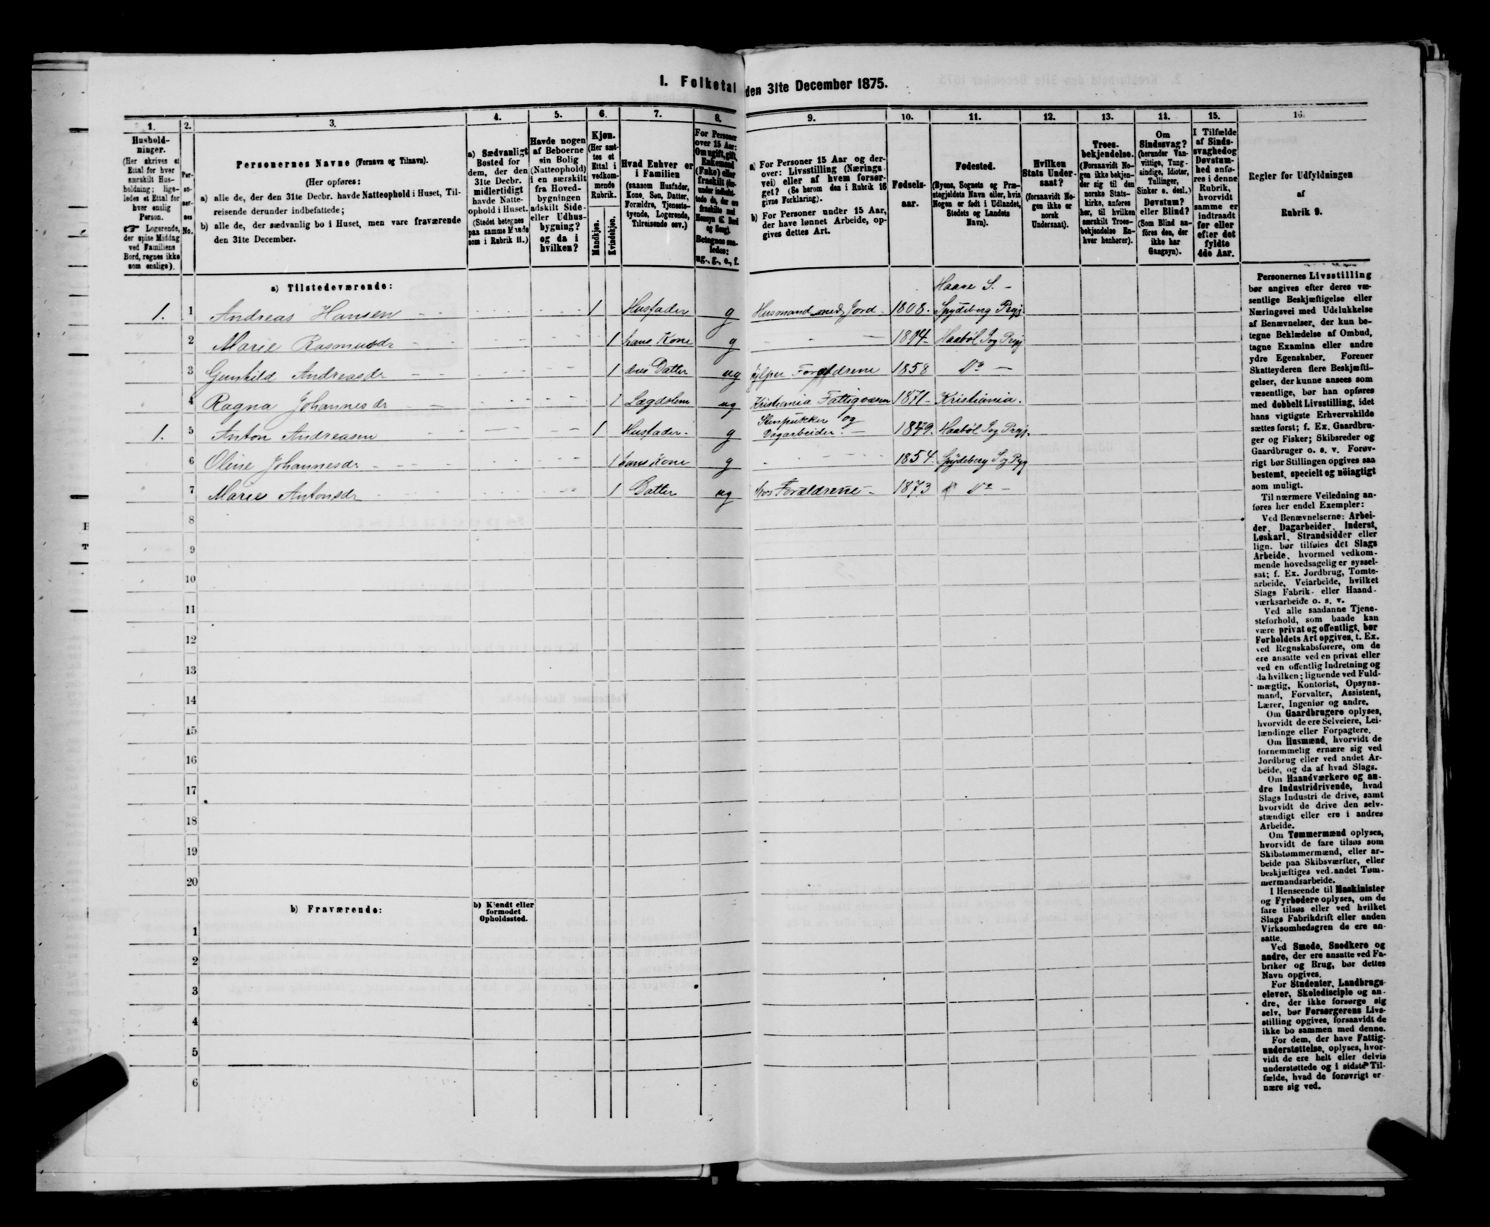 I. Folketal den 31te December 1875.
1.
2.
3.
4.
5.
6.
7.
8.
9.
10.
11.
12.
13.
14.
15.
16.
Hushold-
ninger.
(Her skrives et
Ettal for hver
særskilt Hus-
holdning; lige-
ledes et Ettal for
hver enslig
Person.
☞ Logerende,
der spise Middag
ved Familiens
Bord, regnes ikke
som enslige).
Per-
so-
ner-
nes
No.
Personernes Navne (Fornavn og Tilnavn).
(Her opføres:
a) alle de, der den 31te Decbr. havde Natteophold i Huset, Til-
reisende derunder indbefattede;
b) alle de, der sædvanlig bo i Huset, men vare fraværende
den 31te December.
a) Sædvanligt
Bosted for
dem, der den
31te Decbr.
midlertidigt
havde Natte-
ophold i Huset.
(Stedet betegnes
paa samme Maade
som i Rubrik 11.)
Havde nogen
af Beboerne
sin Bolig
(Natteophold)
i en særskilt
fra Hoved-
bygningen
adskilt Side-
eller Udhus-
bygning?
og da i
hvilken?
Kjøn.
(Her sæt-
tes et
Ettal i
vedkom-
mende
Rubrik.
Mandkjøn.
Kvindekjøn.
Hvad Enhver er
i Familien
(saasom Husfader,
Kone, Søn, Datter,
Forældre, Tjeneste-
tyende, Logerende,
Tilreisende osv.)
For Personer
over 15 Aar:
Om ugift, gift,
Enkemand
(Enke) eller
fraskilt
ug., g., e., f.
a) For Personer 15 Aar og der-
over: Livsstilling (Nærings-
vei) eller af hvem forsør-
get? (Se herom den i Rubrik 16
givne Forklaring).
b) For Personer under 15 Aar,
der have lønnet Arbeide, op-
gives dettes Art.
Fødsels-
aar.
Fødested.
(Byens, Sognets og Præ-
stegjeldets Navn eller, hvis
Nogen er født i Udlandet,
Stedets og Landets
Navn).
Hvilken
Stats Under-
saat?
(forsaavidt No-
gen ikke er
norsk
Undersaat).
Troes-
bekjendelse.
(Forsaavidt No-
gen ikke bekjen-
der sig til den
norske Stats-
kirke, anføres
her, til hvilken
særskilt Troes-
bekjendelse En-
hver henhører).
Om
Sindssvag?
(herunder Van-
vittige, Tung-
sindige, Idioter,
Tullinger,
Sinker o. desl.)
Døvstum?
eller Blind?
(Som Blind an-
føres den, der
ikke har
Gangsyn).
I Tilfælde
af Sinds-
svaghed og
Døvstum-
hed anfø-
res i denne
Rubrik,
hvorvidt
samme er
indtraadt
før eller
efter det
fyldte
4de Aar.
Regler for Udfyldningen
af
Rubrik 9.
a) Tilstedeværende:
Haare S. -
1. 1 Andreas Hansen 1 Husfader g Husmand med Jord 1808. Spydeberg Prgj
2 Marie Rasmusdr 1 hans Kone g Haabøl S og Prgj
3 Gunhild Andreasdr 1 Datter ug hjelper Forældrene 1858 Do
4 Ragna Johannesdr 1 Lægdslem ug Kristiania Fattigvæsen 1871 Kristiania.
1. 5 Anton Andreasen 1 Husfader. g Stenpukker og
Dagarbeider. 1849. Haabøl S og Prgj.
6 Oline Johannesdr 1 hans Kone g 1854. Spydeberg S og Prgj
7 Marie Antonsdr 1 Datter ug hos Forældrene 1873 Do
8
9
10
11
12
13
14
15
16
17
18
19
20
b) Fraværende:
b) Kjendt eller
formodet
Opholdssted.
1
2
3
4
5
6
Personernes Livsstilling
bør angives efter deres væ-
sentlige Beskjæftigelse eller
Næringsvei med Udelukkelse
af Benævnelser, der kun be-
tegne Beklædelse af Ombud,
tagne Examina eller andre
ydre Egenskaber. Forener
Skatteyderen flere Beskjæfti-
gelser, der kunne ansees som
væsentlige, bør han opføres
med dobbelt Livsstilling, idet
hans vigtigste Erhvervskilde
sættes først; f. Ex. Gaardbru-
ger og Fisker; Skibsreder og
Gaardbruger o. s. v. Forøv-
rigt bør Stillingen opgives saa
bestemt, specielt og nøiagtigt
som muligt.
Til nærmere Veiledning an-
føres her endel Exempler:
Ved Benævnelserne: Arbei-
der, Dagarbeider, Inderst,
Løskarl, Strandsidder eller
lign. bør tilføies det Slags
Arbeide, hvormed vedkom-
mende hovedsagelig er syssel-
sat; f. Ex. Jordbrug, Tomte-
arbeide, Veiarbeide, hvilket
Slags Fabrik- eller Haand-
værksarbeide o. s. v.
Ved alle saadanne Tjene-
steforhold, som baade kan
være privat og offentligt, bør
Forholdets Art opgives, t. Ex.
ved Regnskabsførere, om de
ere ansatte ved en privat eller
ved en offentlig Indretning og
da hvilken; lignende ved Fuld-
mægtig, Kontorist, Opsyns-
mand, Forvalter, Assistent,
Lærer, Ingeniør og andre.
Om Gaardbrugere oplyses,
hvorvidt de ere Selveiere, Lei-
lændinge eller Forpagtere.
Om Husmænd, hvorvidt de
fornemmelig ernære sig ved
Jordbrug eller ved andet Ar-
beide, og da af hvad Slags.
Om Haandværkere og an-
dre Industridrivende, hvad
Slags Industri de drive, samt
hvorvidt de drive den selv-
stændigt eller ere i andres
Arbeide.
Om Tømmermænd oplyses,
hvorvidt de fare tilsøs som
Skibstømmermænd, eller ar-
beide paa Skibsværfter, eller
beskjæftiges ved andet Tøm-
mermandsarbeide.
I Henseende til Maskinister
og Fyrbødere oplyses, om de
fare tilsøs eller ved hvilket
Slags Fabrikdrift eller anden
Virksomhedsgren de ere an-
satte.
Ved Smede, Snedkere og
andre, der ere ansatte ved Fa-
briker og Brug, bør dettes
Navn opgives.
For Studenter, Landbrugs-
elever, Skoledisciple og an-
dre, der ikke forsørge sig
selv, bør Forsørgerens Livs-
stilling opgives, forsaavidt de
ikke bo sammen med denne.
For dem, der have Fattig-
understøttelse, oplyses, hvor-
vidt de ere helt eller delvis
understøttede og i sidste Til-
fælde, hvad de forøvrigt er-
nære sig ved.